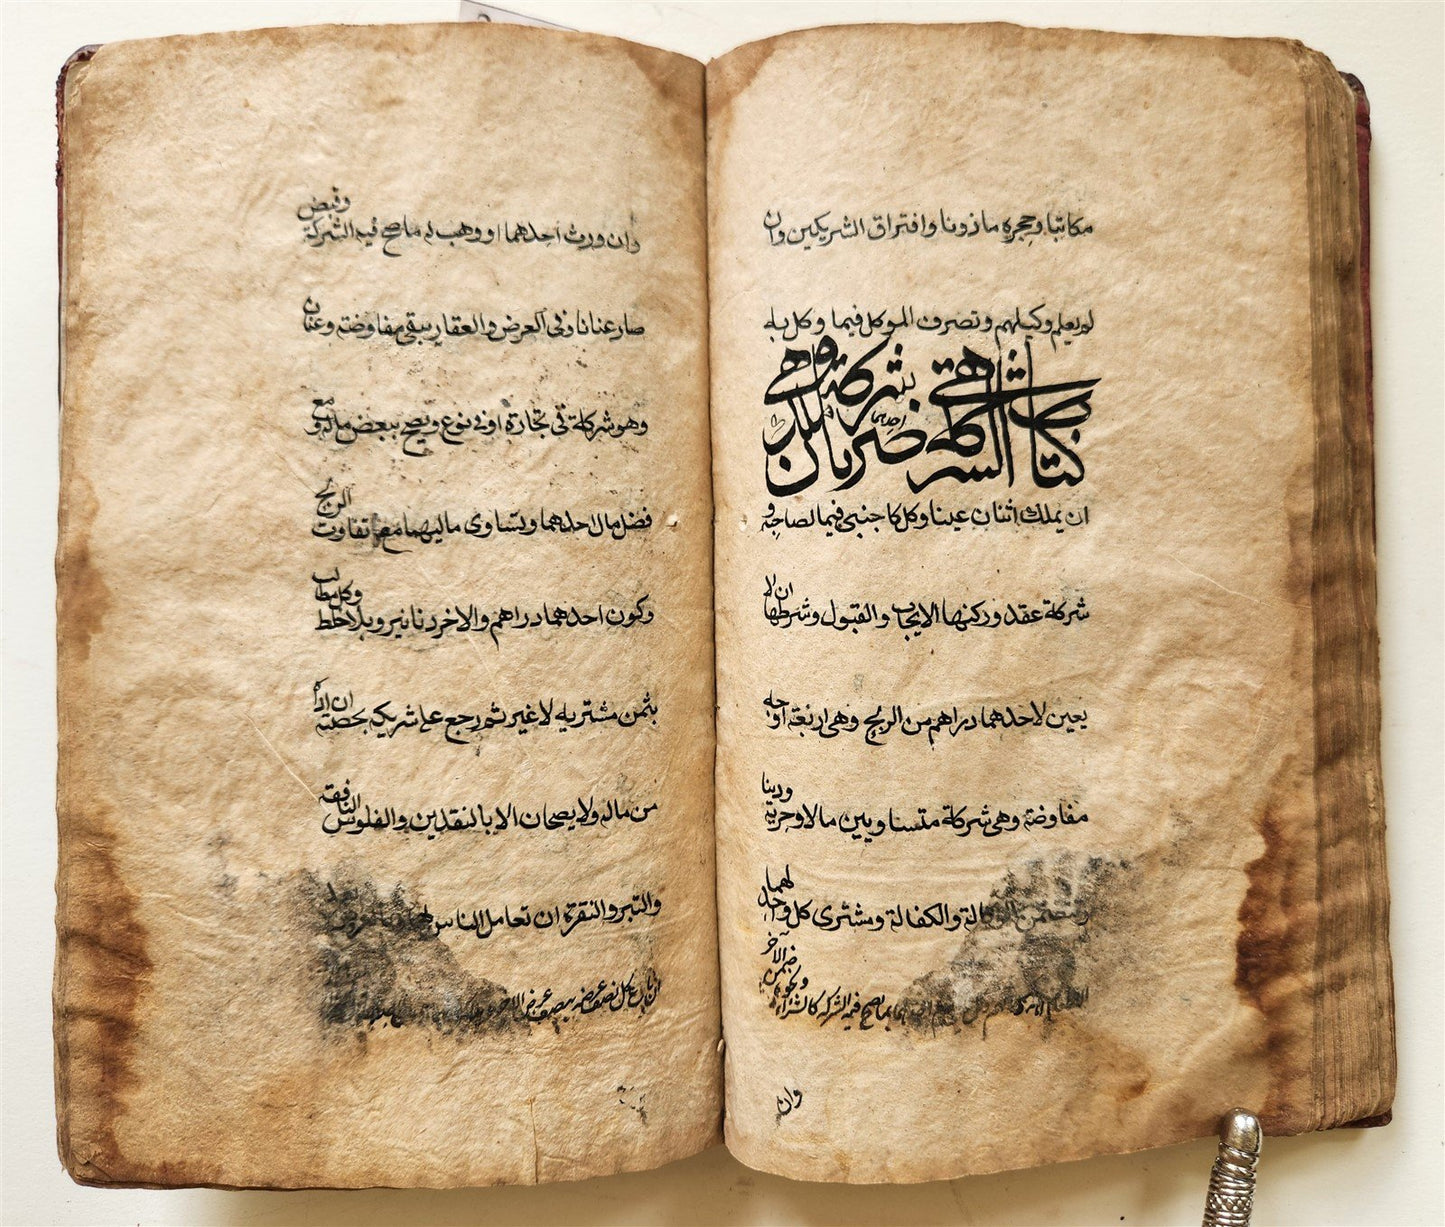 مكاتبا وحجره ماذونا وافتراق الشريكين وان
لم يعلم وكيلهم وتصرف الموكل فيما وكل به
كتاب الشركة هي ضربان شركة ملك وهي
ان يملك اثنان عينا وكل كاجنبي فيما لصاحبه و
شركة عقد وركنها الايجاب والقبول وشرطها ان لا
يعين لاحدهما دراهم من الربح وهي اربعة اوجه
مفاوضة وهي شركة متساويين مالا وحرية ودينا
والكفالة ومشترى كل واحد لهما
بما يصح فيه الشركة كالشراء ونحوه ضمن الآخر
وان
وان ورث احدهما او وهب له ما صح فيه الشركة وقبض
صار عنانا وفي العرض والعقار يبقى مفاوضة وعنان
وهو شركة في تجارة او في نوع ويصح ببعض ماله و مع
فضل مال احدهما وتساوي ماليهما مع تفاوت الربح
وكون احدهما دراهم والاخر دنانير وبلا خلط وكل مطالب
بثمن مشتريه لا غير ثم رجع على شريكه بحصته ان اداه
من ماله ولا يصحان الا بالنقدين والفلوس النافقة
والتبر والنقرة ان تعامل الناس بهما
كل نصف عرضه بنصف عرض الاخر